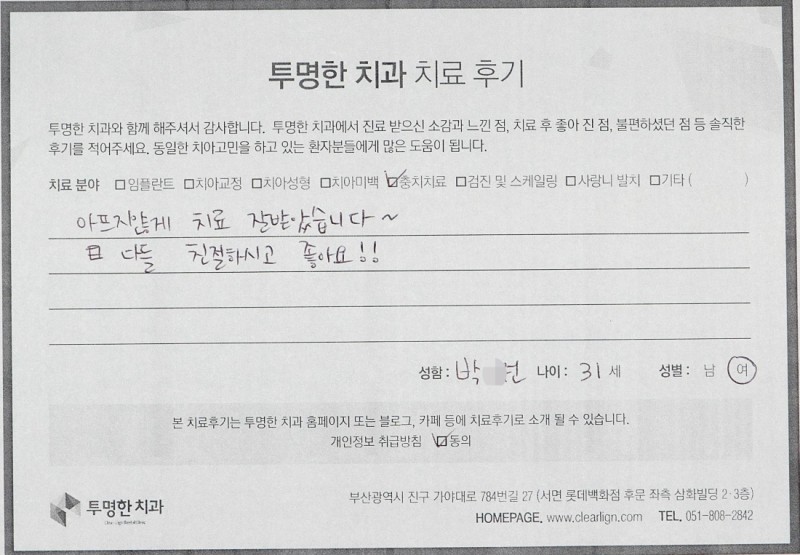 투명한 치과 치료 후기
투명한 치과와 함께 해주셔서 감사합니다. 투명한 치과에서 진료 받으신 소감과 느낀 점, 치료 후 좋아 진 점, 불편하셨던 점 등 솔직한
후기를 적어주세요. 동일한 치아고민을 하고 있는 환자분들에게 많은 도움이 됩니다.
치료 분야 □임플란트 □치아교정 □치아성형 □치아미백 ☑충치치료 □검진 및 스케일링 □사랑니 발치 □기타 ( )
아프지않게 치료 잘받았습니다~
다들 친절하시고 좋아요!!
성함: 박 나이: 31 세 성별: 남 여
본 치료후기는 투명한 치과 홈페이지 또는 블로그, 카페 등에 치료후기로 소개 될 수 있습니다.
개인정보 취급방침 ☑동의
투명한 치과
부산광역시 진구 가야대로 784번길 27 (서면 롯데백화점 후문 좌측 삼화빌딩 2·3층)
HOMEPAGE. www.clearlign.com TEL. 051-808-2842